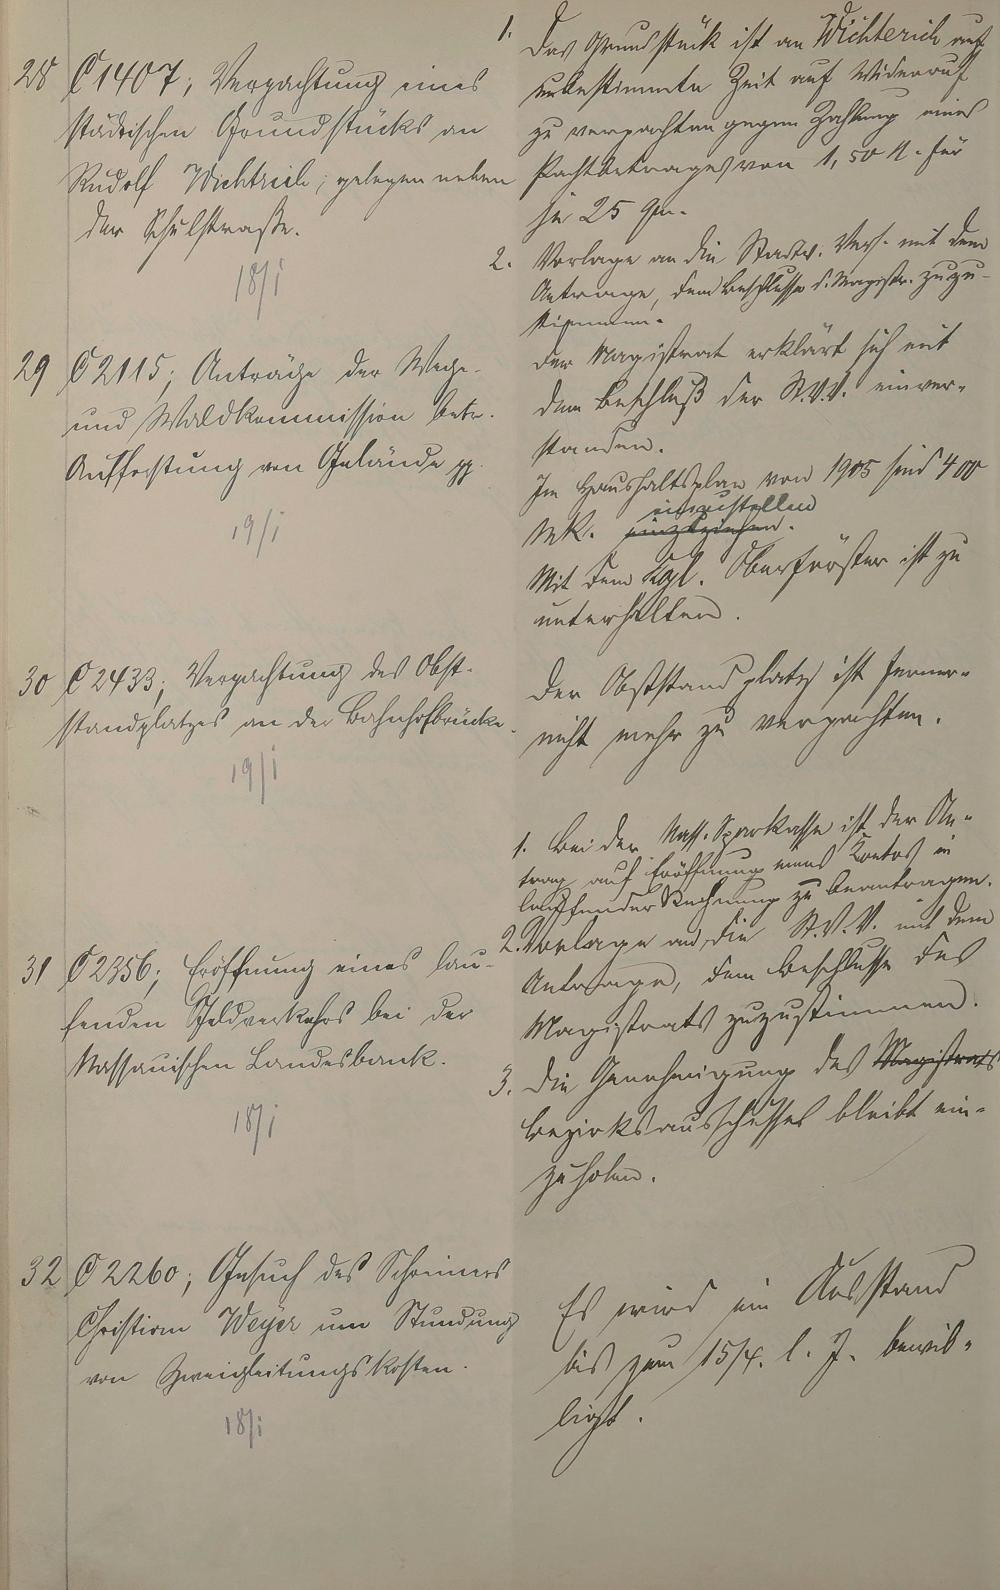 28 C 1407; Verpachtung eines
städtischen Grundstücks an
Rudolf Wichtrich; gelegen neben
der Schulstraße.
18/I
1. Das Grundstück ist an Wichterich auf
unbestimmte Zeit auf Widerruf
zu verpachten gegen Zahlung eines
Pachtbetrages von 1,50 M. für
je 25 qm.
2. Vorlage an die Stadtv. Vers. mit dem
Antrage, dem Beschlusse d. Magistr. zuzu-
stimmen.
29 C 2115; Anträge der Wege-
und Waldkommission betr.
Aufforstung von Gelände pp.
19/I
Der Magistrat erklärt sich mit
dem Beschluß der St.V.V. einver-
standen.
Im Haushaltsplan von 1905 sind 400
einzustellen
Mk. einzuziehen.
Mit dem Kgl. Oberförster ist zu
unterhalten.
30 C 2433; Verpachtung des Obst-
standplatzes an der Bahnhofbrücke.
19/I
Der Obststandplatz ist ferner-
nicht mehr zu verpachten.
31 C 2356; Eröffnung eines lau-
fenden Geldverkehrs bei der
Nassauischen Landesbank.
18/I
1. Bei der Nass. Sparkasse ist der An-
trag auf Eröffnung eines Kontos in
laufender Rechnung zu beantragen.
2. Vorlage an die St.V.V. mit dem
Antrage, dem Beschlusse des
Magistrats zuzustimmen.
3. Die Genehmigung des Magistrats
Bezirksausschusses bleibt ein-
zuholen.
32 C 2260; Gesuch des Schreiners
Christian Weyer um Stundung
von Zweigleitungskosten.
18/I
Es wird ein Ausstand
bis zum 15/4. l. J. bewil-
ligt.